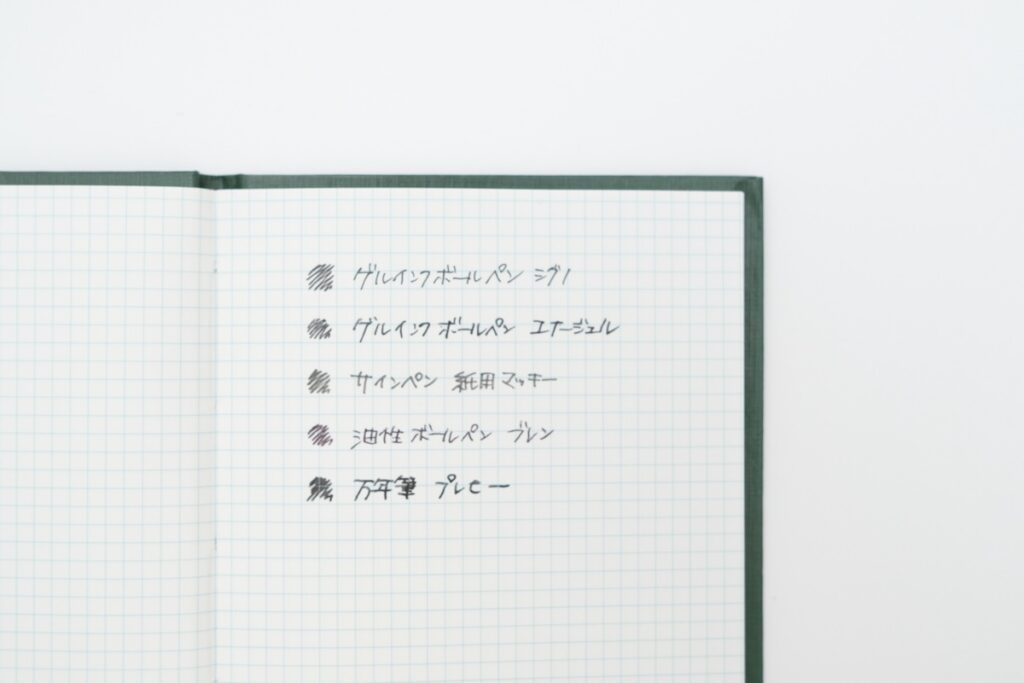 ゲルインクボールペン シグノ
ゲルインク ボールペン エナージェル
サインペン 紙用マッキー
油性 ボールペン ブレン
万年筆 プレピー